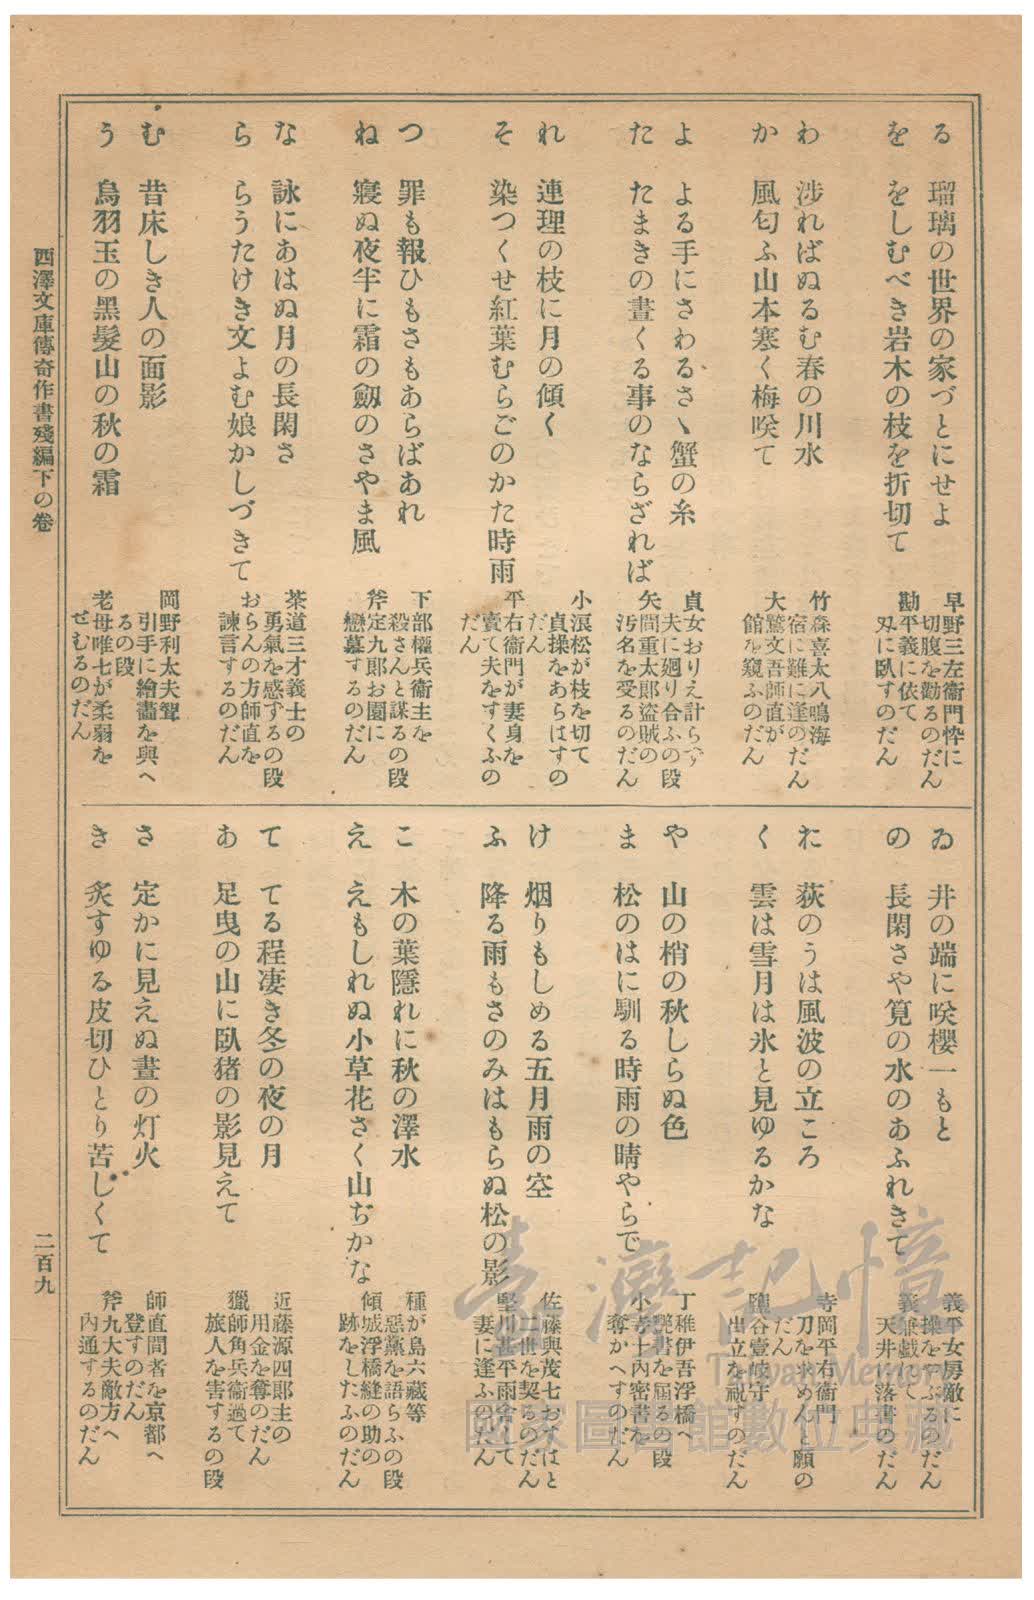 る　瑠璃の世界の家づとにせよ
早野三左衞門忰に
切腹を勸るのだん
を　をしむべき岩木の枝を折切て
勘平義に依て
刄に臥すのだん
わ　渉ればぬるむ春の川水
竹森喜太八鳴海
宿に難に逢のだん
か　風匂ふ山本寒く梅咲て
大鷲文吾師直が
館を窺ふのだん
よ　よる手にさわるさゝ蟹の糸
貞女おりえ計らず
夫に廻り合ふの段
た　たまきの晝くる事のならざれば
矢間重太郎盜賊の
汚名を受るのだん
れ　連理の枝に月の傾く
小浪松が枝を切て
貞操をあらはすの
だん
そ　染つくせ紅葉むらごのかた時雨
平右衞門が妻身を
賣て夫をすくふの
だん
つ　罪も報ひもさもあらばあれ
下部權兵衞主を
殺さんと謀るの段
ね　寢ぬ夜半に霜の劔のさやま風
斧定九郎お園に
戀慕するのだん
な　詠にあはぬ月の長閑さ
茶道三才義士の
勇氣を感ずるの段
ら　らうたけき文よむ娘かしづきて
おらんの方師直を
諫言するのだん
む　昔床しき人の面影
岡野利太夫聟
引手に繪畵を與へ
るの段
う　烏羽玉の黑髮山の秋の霜
老母唯七が柔弱を
せむるのだん
ゐ　井の端に咲櫻一もと
義平女房敵に
操をやぶるのだん
の　長閑さや筧の水のあふれきて
義兼戯れて
天井へ落書のだん
た　荻のうは風波の立ころ
寺岡平右衞門
刀を求めんと願の
だん
く　雲は雪月は氷と見ゆるかな
鹽谷壹岐守
出立を祝すのだん
や　山の梢の秋しらぬ色
丁稚伊吾浮橋へ
艶書を屆るの段
ま　松のはに馴る時雨の晴やらで
小寺十内密書を
奪かへすのだん
け　烟りもしめる五月雨の空
佐藤與茂七おてはと
二世を契るのだん
ふ　降る雨もさのみはもらぬ松の影
堅川甚平雨舍して
妻に逢ふのだん
こ　木の葉隱れに秋の澤水
種が島六藏等
惡黨を語らふの段
え　えもしれぬ小草花さく山ぢかな
傾城浮橋縫の助の
跡をしたふのだん
て　てる程凄き冬の夜の月
近藤源四郎主の
用金を奪のだん
あ　足曳の山に臥猪の影見えて
獵師角兵衞過て
旅人を害するの段
さ　定かに見えぬ晝の灯火
師直間者を京都へ
登すのだん
き　炙すゆる皮切ひとり苦しくて
斧九大夫敵方へ
内通するのだん
西澤文庫傳奇作書殘編下の卷
二百九
臺灣記憶
Taiwan Memory
國家圖書館數位典藏